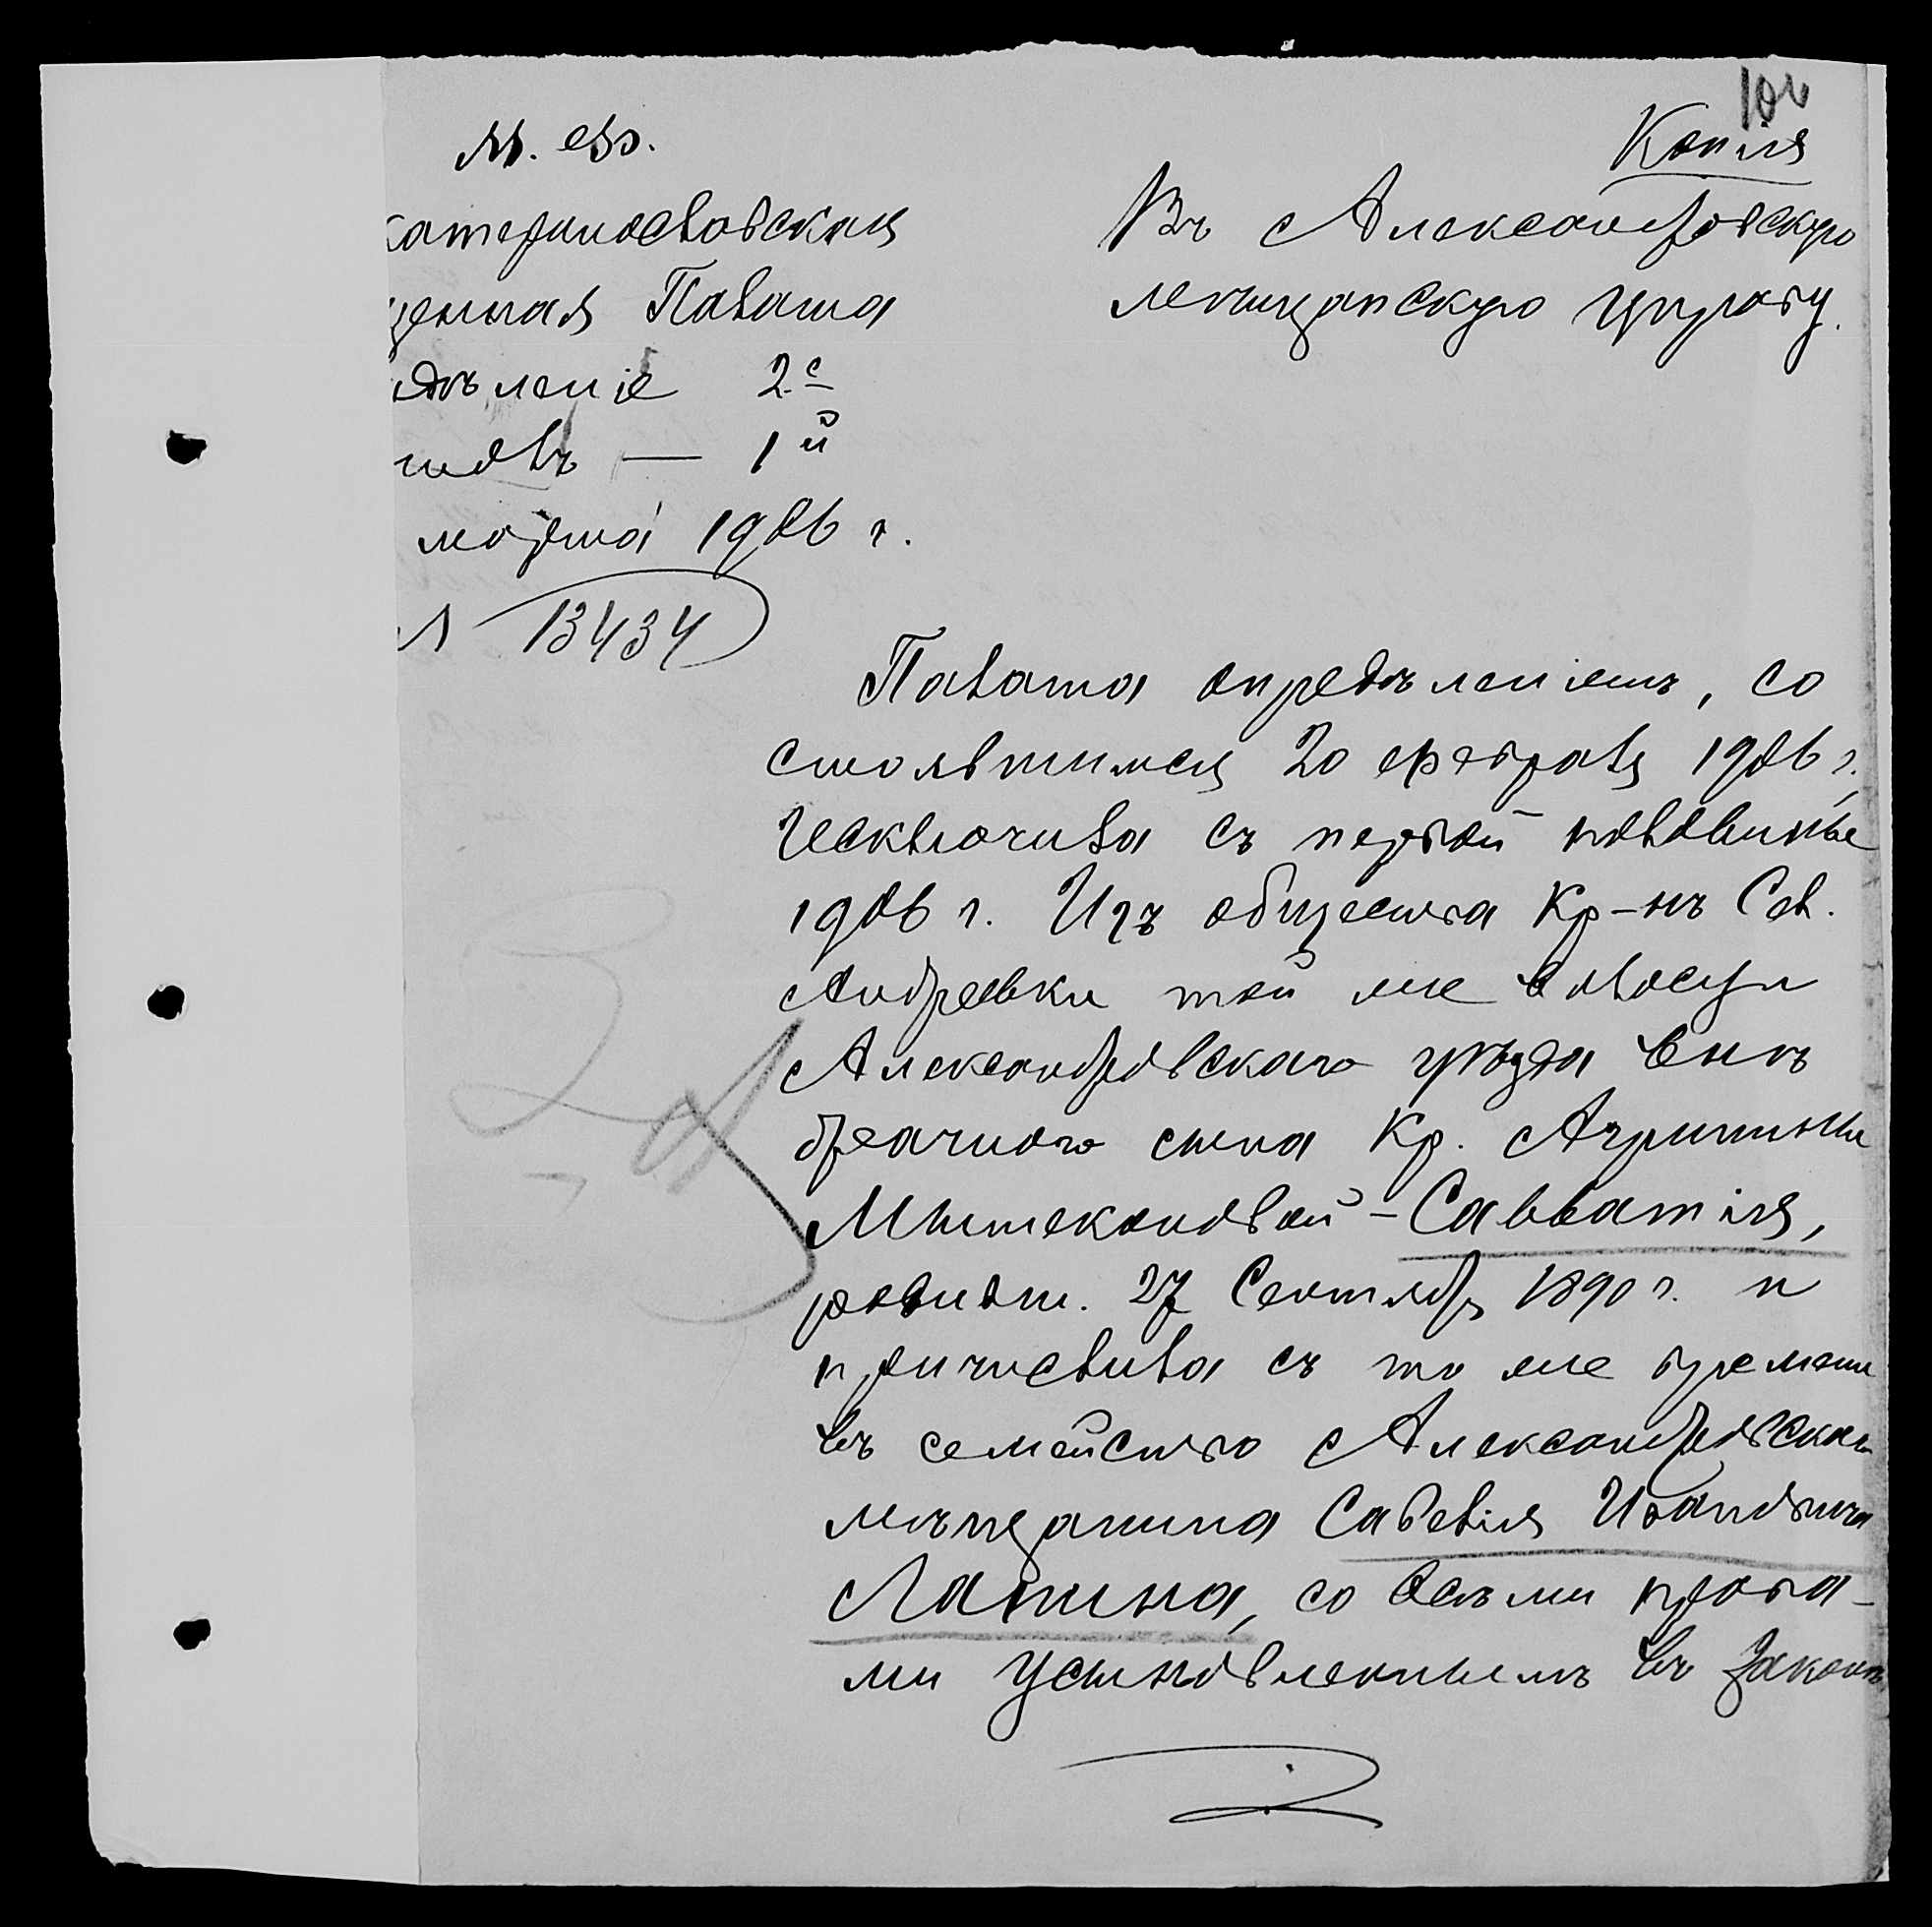 М. Ф.
катеринославская
зенная Палата
дѣленіе 2е
столъ — 1й
марта 1906 г.
№ 13434
Копія
Въ Александровскую
мещанскую управу.
Палата опредѣленіемъ, со
стоявшимся 20 февраля 1906 г.,
исключила съ первой половины
1906 г. Изъ общества Кр-нъ Сел.
Андреевки той же волости
Александровскаго уѣзда внѣ
брачного сына Кр. Агрипины
Савватія,
родивш. 27 Сентябр 1890 г. и
причислила съ то же времени
въ семейство Александровскаго
мѣщанина Савелія Ивановича
Лапина, со всѣми права-
ми усыновленнымъ въ законѣ